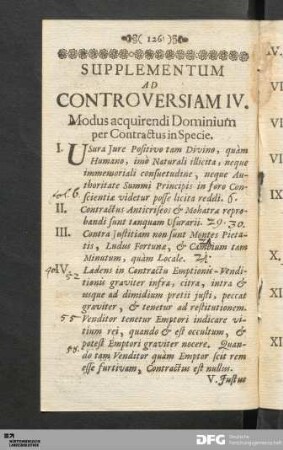 ( 126 )
SUPPLEMENTUM
AD
CONTROVERSIAM IV.
Modus acquirendi Dominium
per Contractus in Specie.
I. USura Jure Positivo tam Divino, quàm
Humano, imò Naturali illicita, neque
immemoriali consuetudine, neque Au-
thoritate Summi Principis in foro Con-
scientiæ videtur posse licita reddi. 6.
II. Contractus Anticreseos & Mohatra repro-
bandi sunt tanquam Usurarii. 29. 30.
III. Contra justitiam non sunt Montes Pieta-
tis, Ludus Fortunæ, & Cambium tam
Minutum, quàm Locale.
IV. Lædens in Contractu Emptionis-Vendi-
52
tionis graviter infra, citra, intra &
usque ad dimidium pretii justi, peccat
graviter, & tenetur ad restitutionem.
55 Venditor tenetur Emptori indicare vi-
tium rei, quando & est occultum, &
potest Emptori graviter nocere. Quan-
do tam Venditor quàm Emptor scit rem
esse furtivam, Contractus est nullus.
V. Justus
IV.
VI
VI
IX
X
XI
XI
DFG
Deutsche
Forschungsgemeinschaft